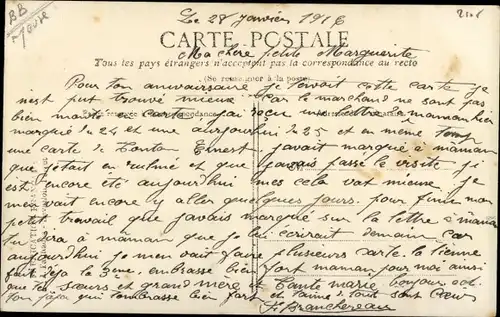 BB
Meuse
Le 28 janvier 1916
CARTE POSTALE
Ma chère petite Marguerite
Tous les pays étrangers n'acceptent pas la correspondance au recto
(Se renseigner à la poste)
Pour ton anniversaire je tenvoit cette carte je
nest put trouvé mieux car le marchand ne sont pas
bien monté en carte jai reçu une lettre a maman hier
marqué du 24 et une aujourhui du 25 et en même temp
une carte de Tonton Ernest javait marqué a màman
que jétait en et que javais passé le visite ji
est encore été aujourdhui mes cela vat mieux je
men vait encore y aller quelques jours. pour fume mon
petit travail que javais marqué sur la lettre a màma
tu dira a màman que je lui écrirait demain car
aujourdhui je men vait faire plusieurs carte. la tienne
fait déja la 3eme. embrasse bien fort maman pour moi ainsi
que tes sœurs et grand mere et Tante marie bonjour
ton pàpa qui tembrasse bien fort et taime de tout sont cœur
F. Branchereau